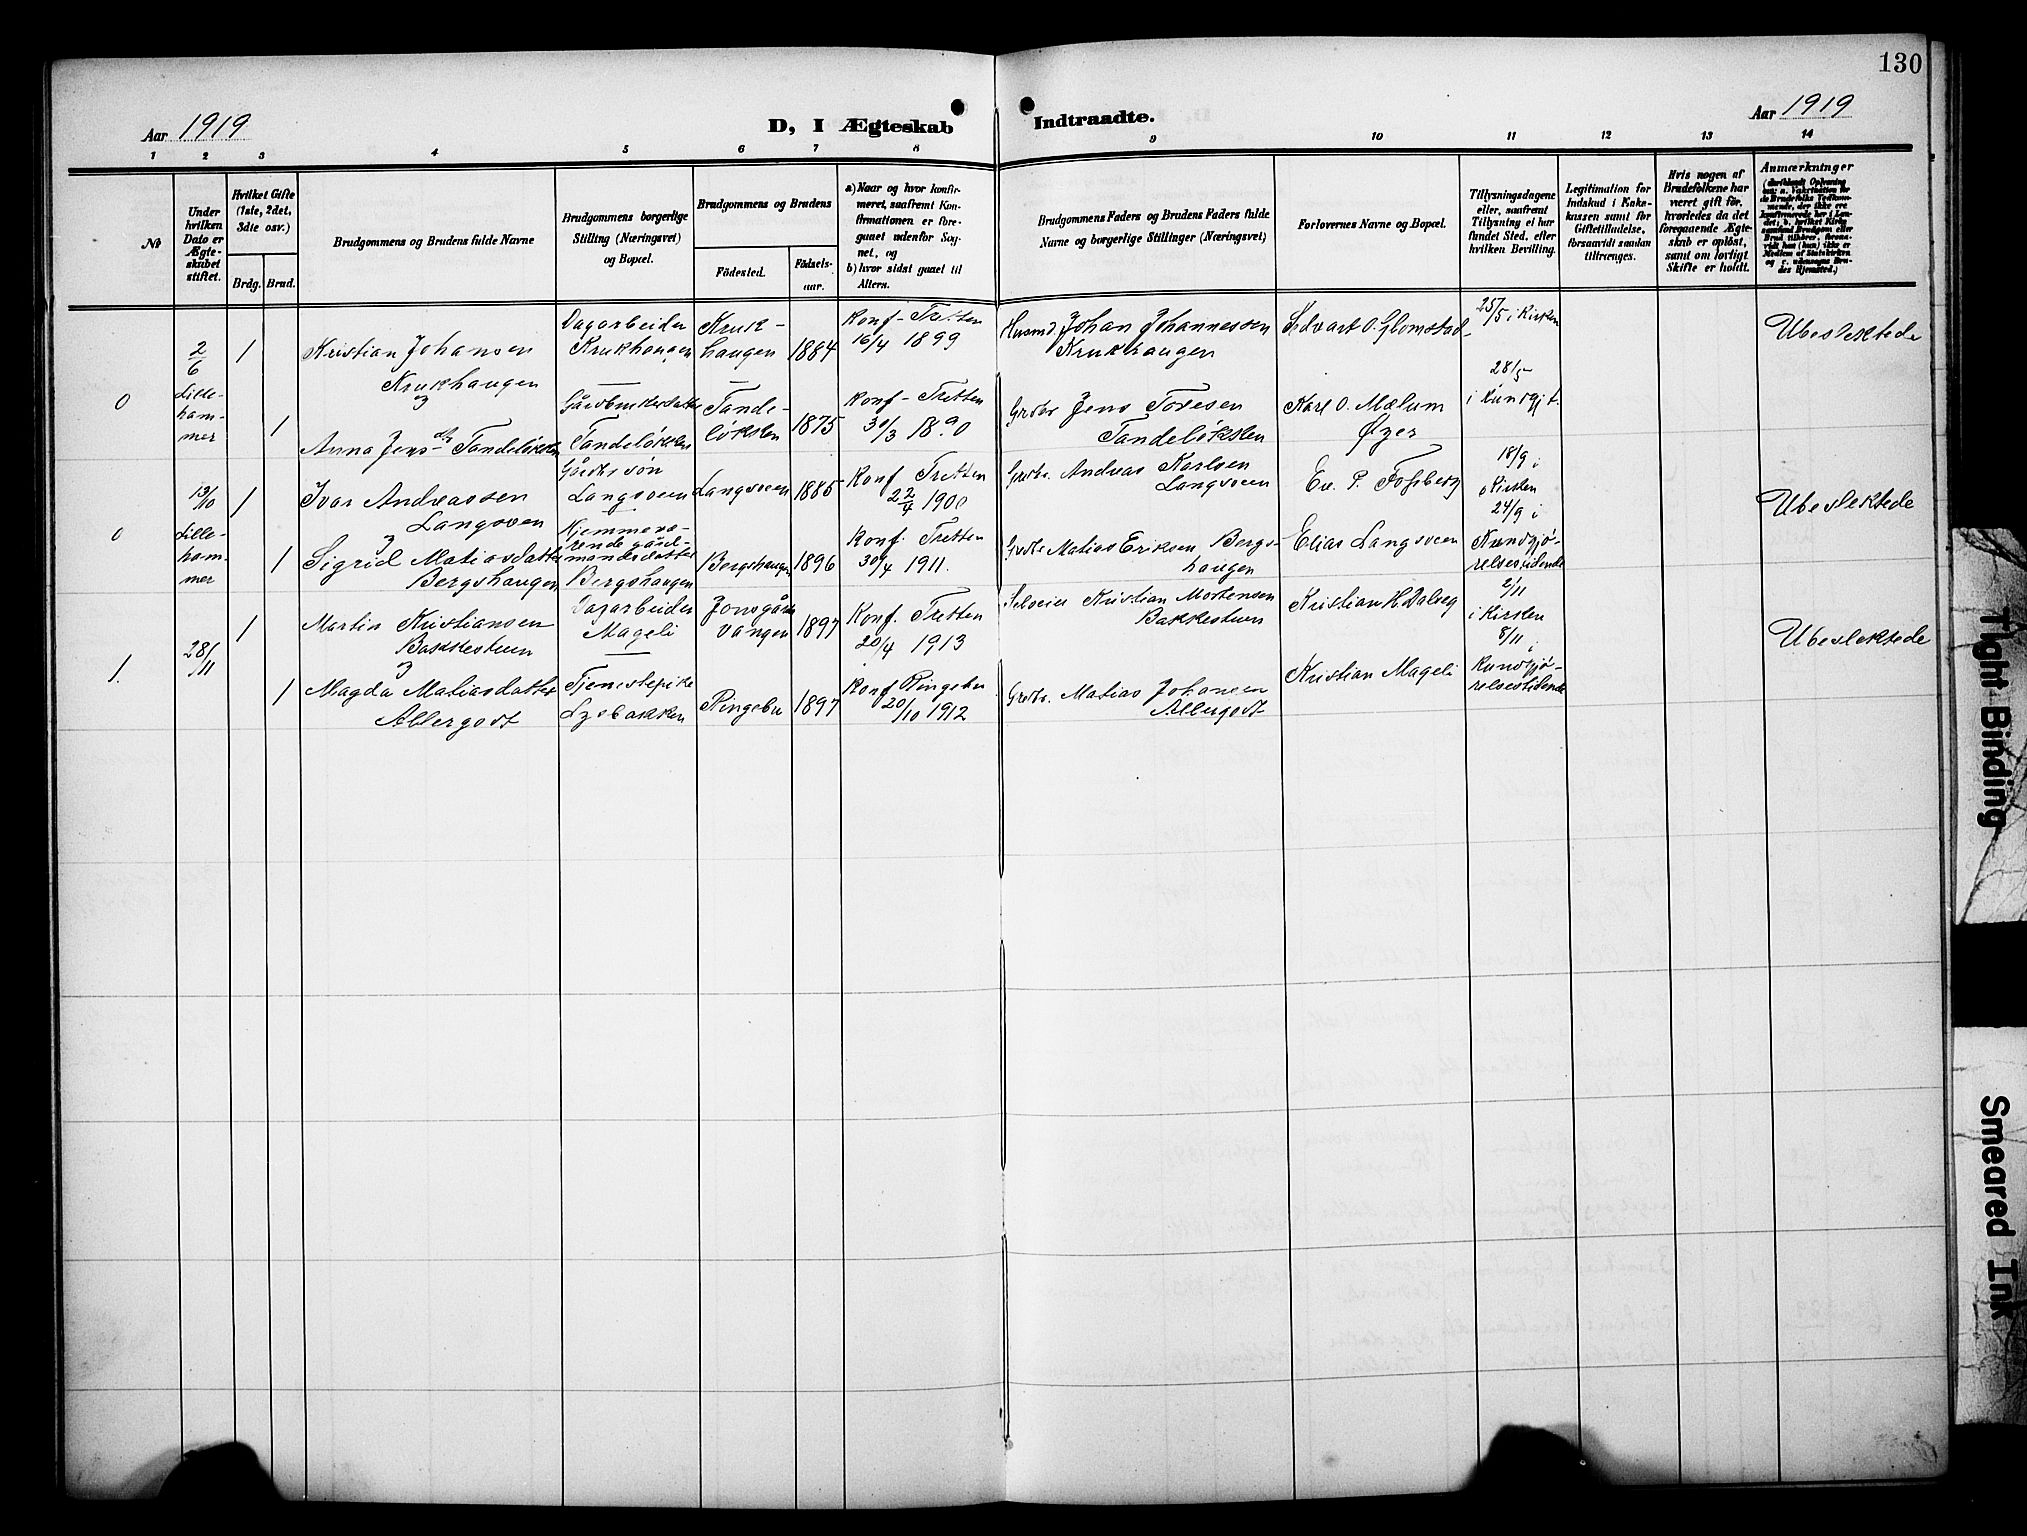 130
Aar 1919
D, I Ægteskab
Indtraadte.
Aar 1919
1 2 3 4 5 6 7 8 9 10 11 12 13 14
№
Under
hvilken
Dato er
Ægte-
skabet
stiftet.
Hvilket Gifte
(1ste, 2det,
3die osv.)
Brdg. Brud.
Brudgommens og Brudens fulde Navne
Brudgommens borgerlige
Stilling (Næringsvei)
og Bopæl.
Brudgommens og Brudens
Födested.
Födsels-
aar.
a) Naar og hvor konfir-
meret, saafremt Kon-
firmationen er fore-
gaaet udenfor Sog-
net, og
b) hvor sidst gaaet til
Alters.
Brudgommens Faders og Brudens Faders fulde
Navne og borgerlige Stillinger (Næringsvei)
Forlovernes Navne og Bopæl.
Tillysningsdagene
eller, saafremt
Tillysning ei har
fundet Sted, efter
hvilken Bevilling.
Legitimation for
Indskud i Enke-
kassen samt for
Giftetilladelse,
forsaavidt saadan
tiltrænges.
Hvis nogen af
Brudefolkene har
været gift før,
hvorledes da det
foregaaende Ægte-
skab er opløst,
samt om lovligt
Skifte er holdt.
Anmærkninger
0
2/6
Lille-
ham-
mer
1
Kristian Johansen
Krukhaugen
Dagarbeider
Krukhaugen
Kruk-
haugen
1884
Konf- Tretten
16/4 1899
Husmd Johan Johannessen
Krukhaugen
Edvart O. Glomstad
25/5 i Kirken
Ubeslektede
3
1
Anna Jens dtr Tandeløkken
Gårdbrukerdatter
Tandeløkken
Tande-
løkken
1875
Konf- Tretten
30/3 1890
Grdbr Jens Toresen
Tandeløkken
Karl O. Mælum
Øyer
28/5
i Kundgjt.
0
13/10
Lille-
ham-
mer
1
Ivar Andreassen
Langsveen
Gårdbr søn
Langsveen
Langsveen
1885
Konf. Tretten
22/4 1900
Grdbr. Andreas Karlsen
Langsveen
Ev. P. Fossberg
18/9 i
Kirken
24/9 i
Kundgjø-
relsestidende
Ubeslektede
3
1
Sigrid Matiasdatter
Bergshaugen
Hjemmevæ-
rende gård-
mandsdatter
Bergshaugen
Bergshaugen
1896
Konf. Tretten
30/4 1911.
Grdbr Matias Eriksen Bergs-
haugen
Elias Langsveen
1.
28/11
1
Martin Kristiansen
Bakkestuen
Dagarbeider
Mageli
Jonsgård
vangen
1897
Konf. Tretten
20/4 1913
Selveier Kristian Mortensen
Bakkestuen
Kristian H. Dalseg
2/11
i Kirken
8/11 i
Kundgjø-
relsestidende
Ubeslektede
3
1
Magda Matiasdatter
Allergodt
Tjenestepike
Lysbakken
Ringebu
1897
Konf Ringebu
20/10 1912
Grdbr. Matias Johansen
Allergodt
Kristian Mageli
Tight Binding
Smeared Ink